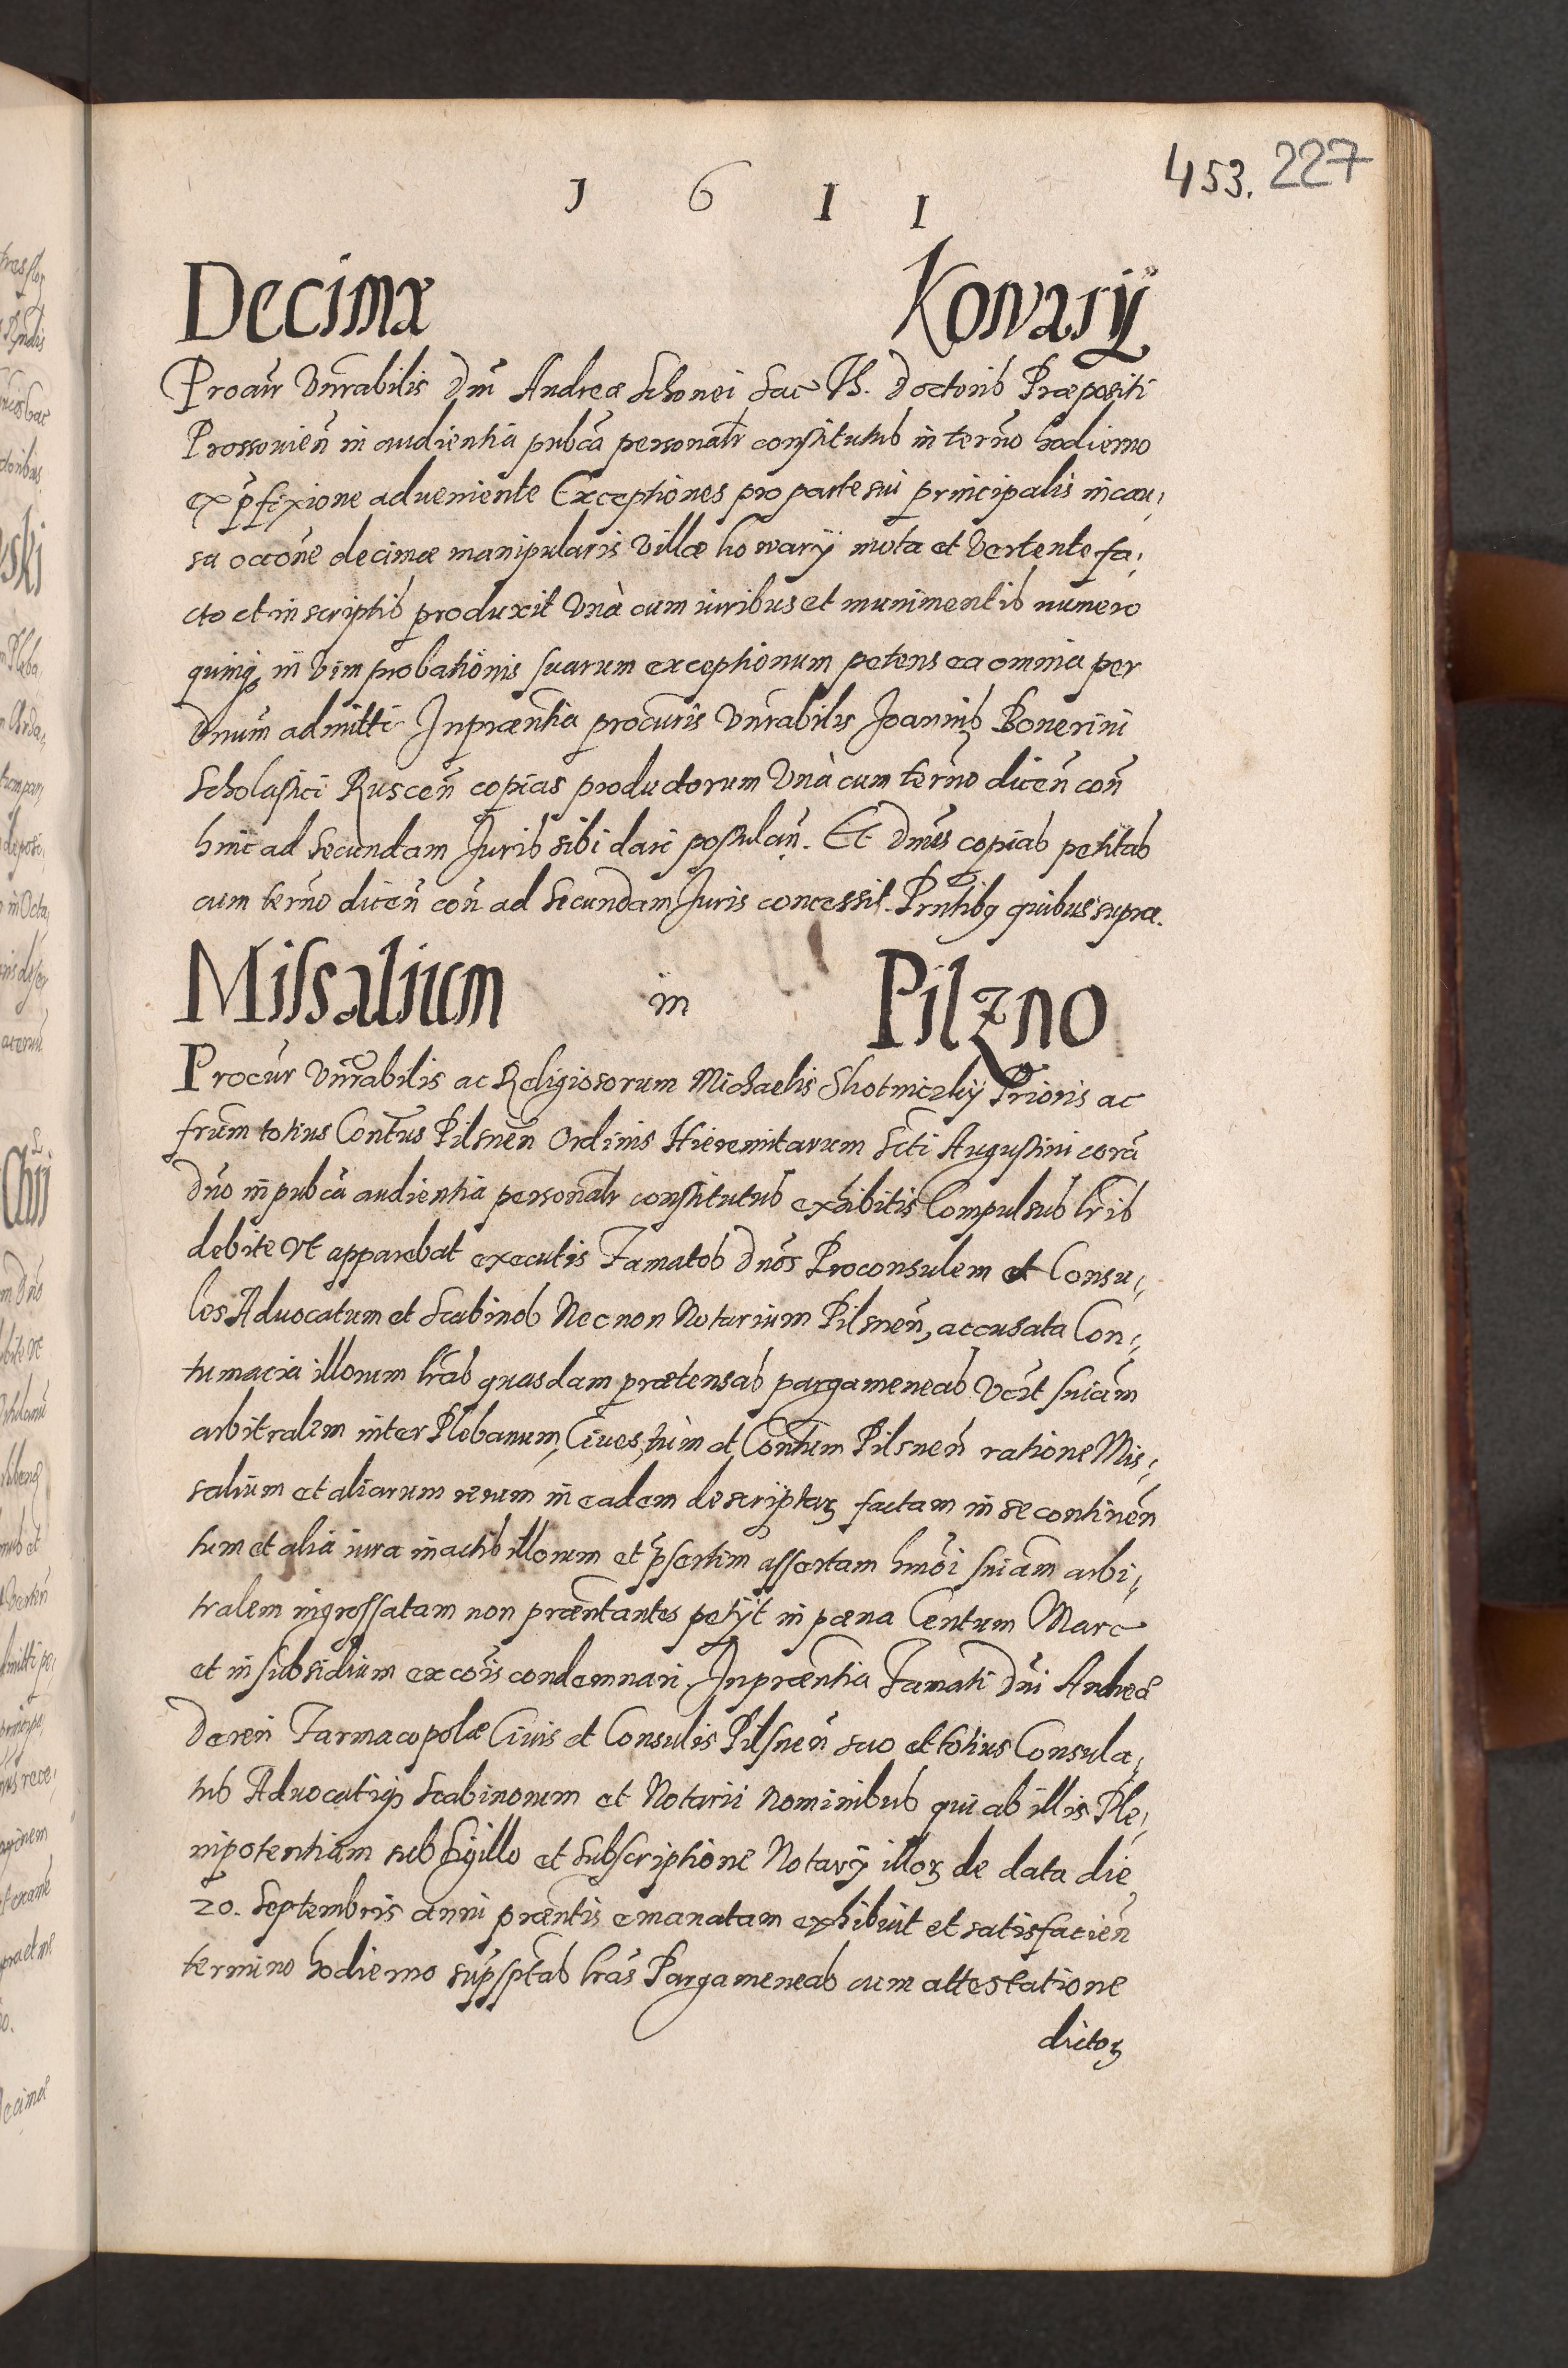 453. 227
1 6 1 1
Decimæ Kowarÿ
Procur Vnrabilis Dni Andreæ Schonei Sac Th. Doctoris Præpositi
Prossouien in audientia pubca personalr constitutus in terno hodierno
ex pfixione adueniente Exceptiones pro parte sui principalis in cau,
sa occone decimæ manipularis Villæ kowarÿ mota et Vertente fa,
cto et in scriptis produxit Vnà cum iuribus et munimentis numero
quinq in Vim probationis suarum exceptionum petens ea omnia per
Dnum admitti. In præntia procuris Vnrabilis Joannis Bonerini
Scholastici Ruscen copias productorum Vnà cum terno dicen con
hinc ad Secundam Juris sibi dari postulan. Et Dnus copias petitas
cum terno dicen con ad Secundam Juris concessit. Pntibq quibus supra.
Missalium in Pilzno
Procur Vnrabilis ac Religiosorum Michaelis Skotniczkÿ Prioris ac
frum totius Contus Pilsnen Ordinis Hieremitarum Scti Augustini corã
Dno in pubca audientia personalr constitutus exhibitis Compulsus lris
debite Vt apparebat executis Famatos Dnos Proconsulem et Consu,
les Aduocatum et Scabinos Nec non Notarium Pilsnen, accusata Con,
tumacia illorum lras quasdam prætensas pargameneas Vcit sniam
arbitralem inter Plebanum, Ciues, tùm et Contum Pilsnen ratione Mis,
salium et aliarum rerum in eadem descriptaʒ factam in se continen
tum et alia iura in actis illorum et psertim assertam hmoi sniam arbi,
tralem ingrossatam non præntantes petÿt in pæna Centum Marc
et in subsidium excois condemnari. In præntia Famati Dni Andreæ
Deren Farmacopolæ Ciuis et Consulis Pilsnen suo et totius Consula,
tus Aduocatiq Scabinorum et Notarii Nominibus qui ab illis Ple,
nipotentiam sub Sigillo et Subscriptione Notarÿ illoʒ de data die
20. Septembris anni præntis emanatam exhibuit et satisfacien
termino hodierno supsptas lras Pargameneas cum attestatione
dictoʒ